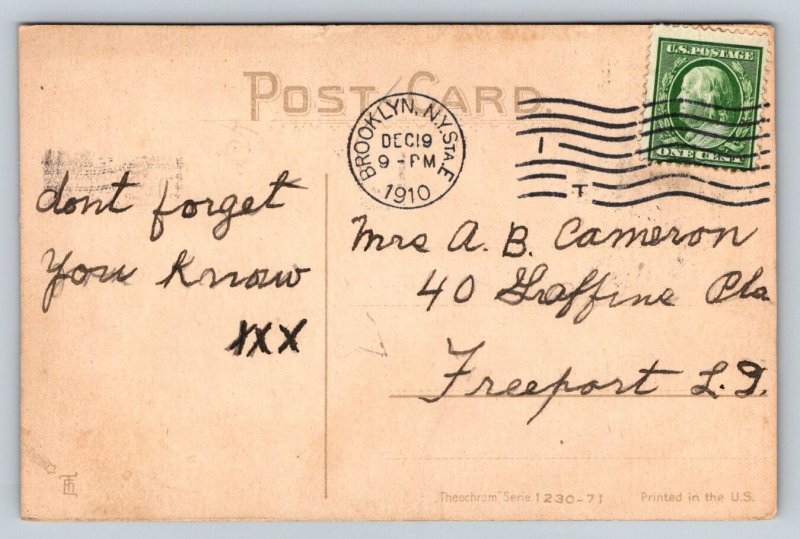 POST CARD.
U.S.POSTAGE
ONE CENT
BROOKLYN, N.Y. STA. E.
DEC 19
9 - PM
1910
I
T
dont forget
you know
XXX
Mrs A. B. Cameron
40 Graffine Pla
Freeport L.I.
"Theochrom" Serie 1230-71
Printed in the U.S.